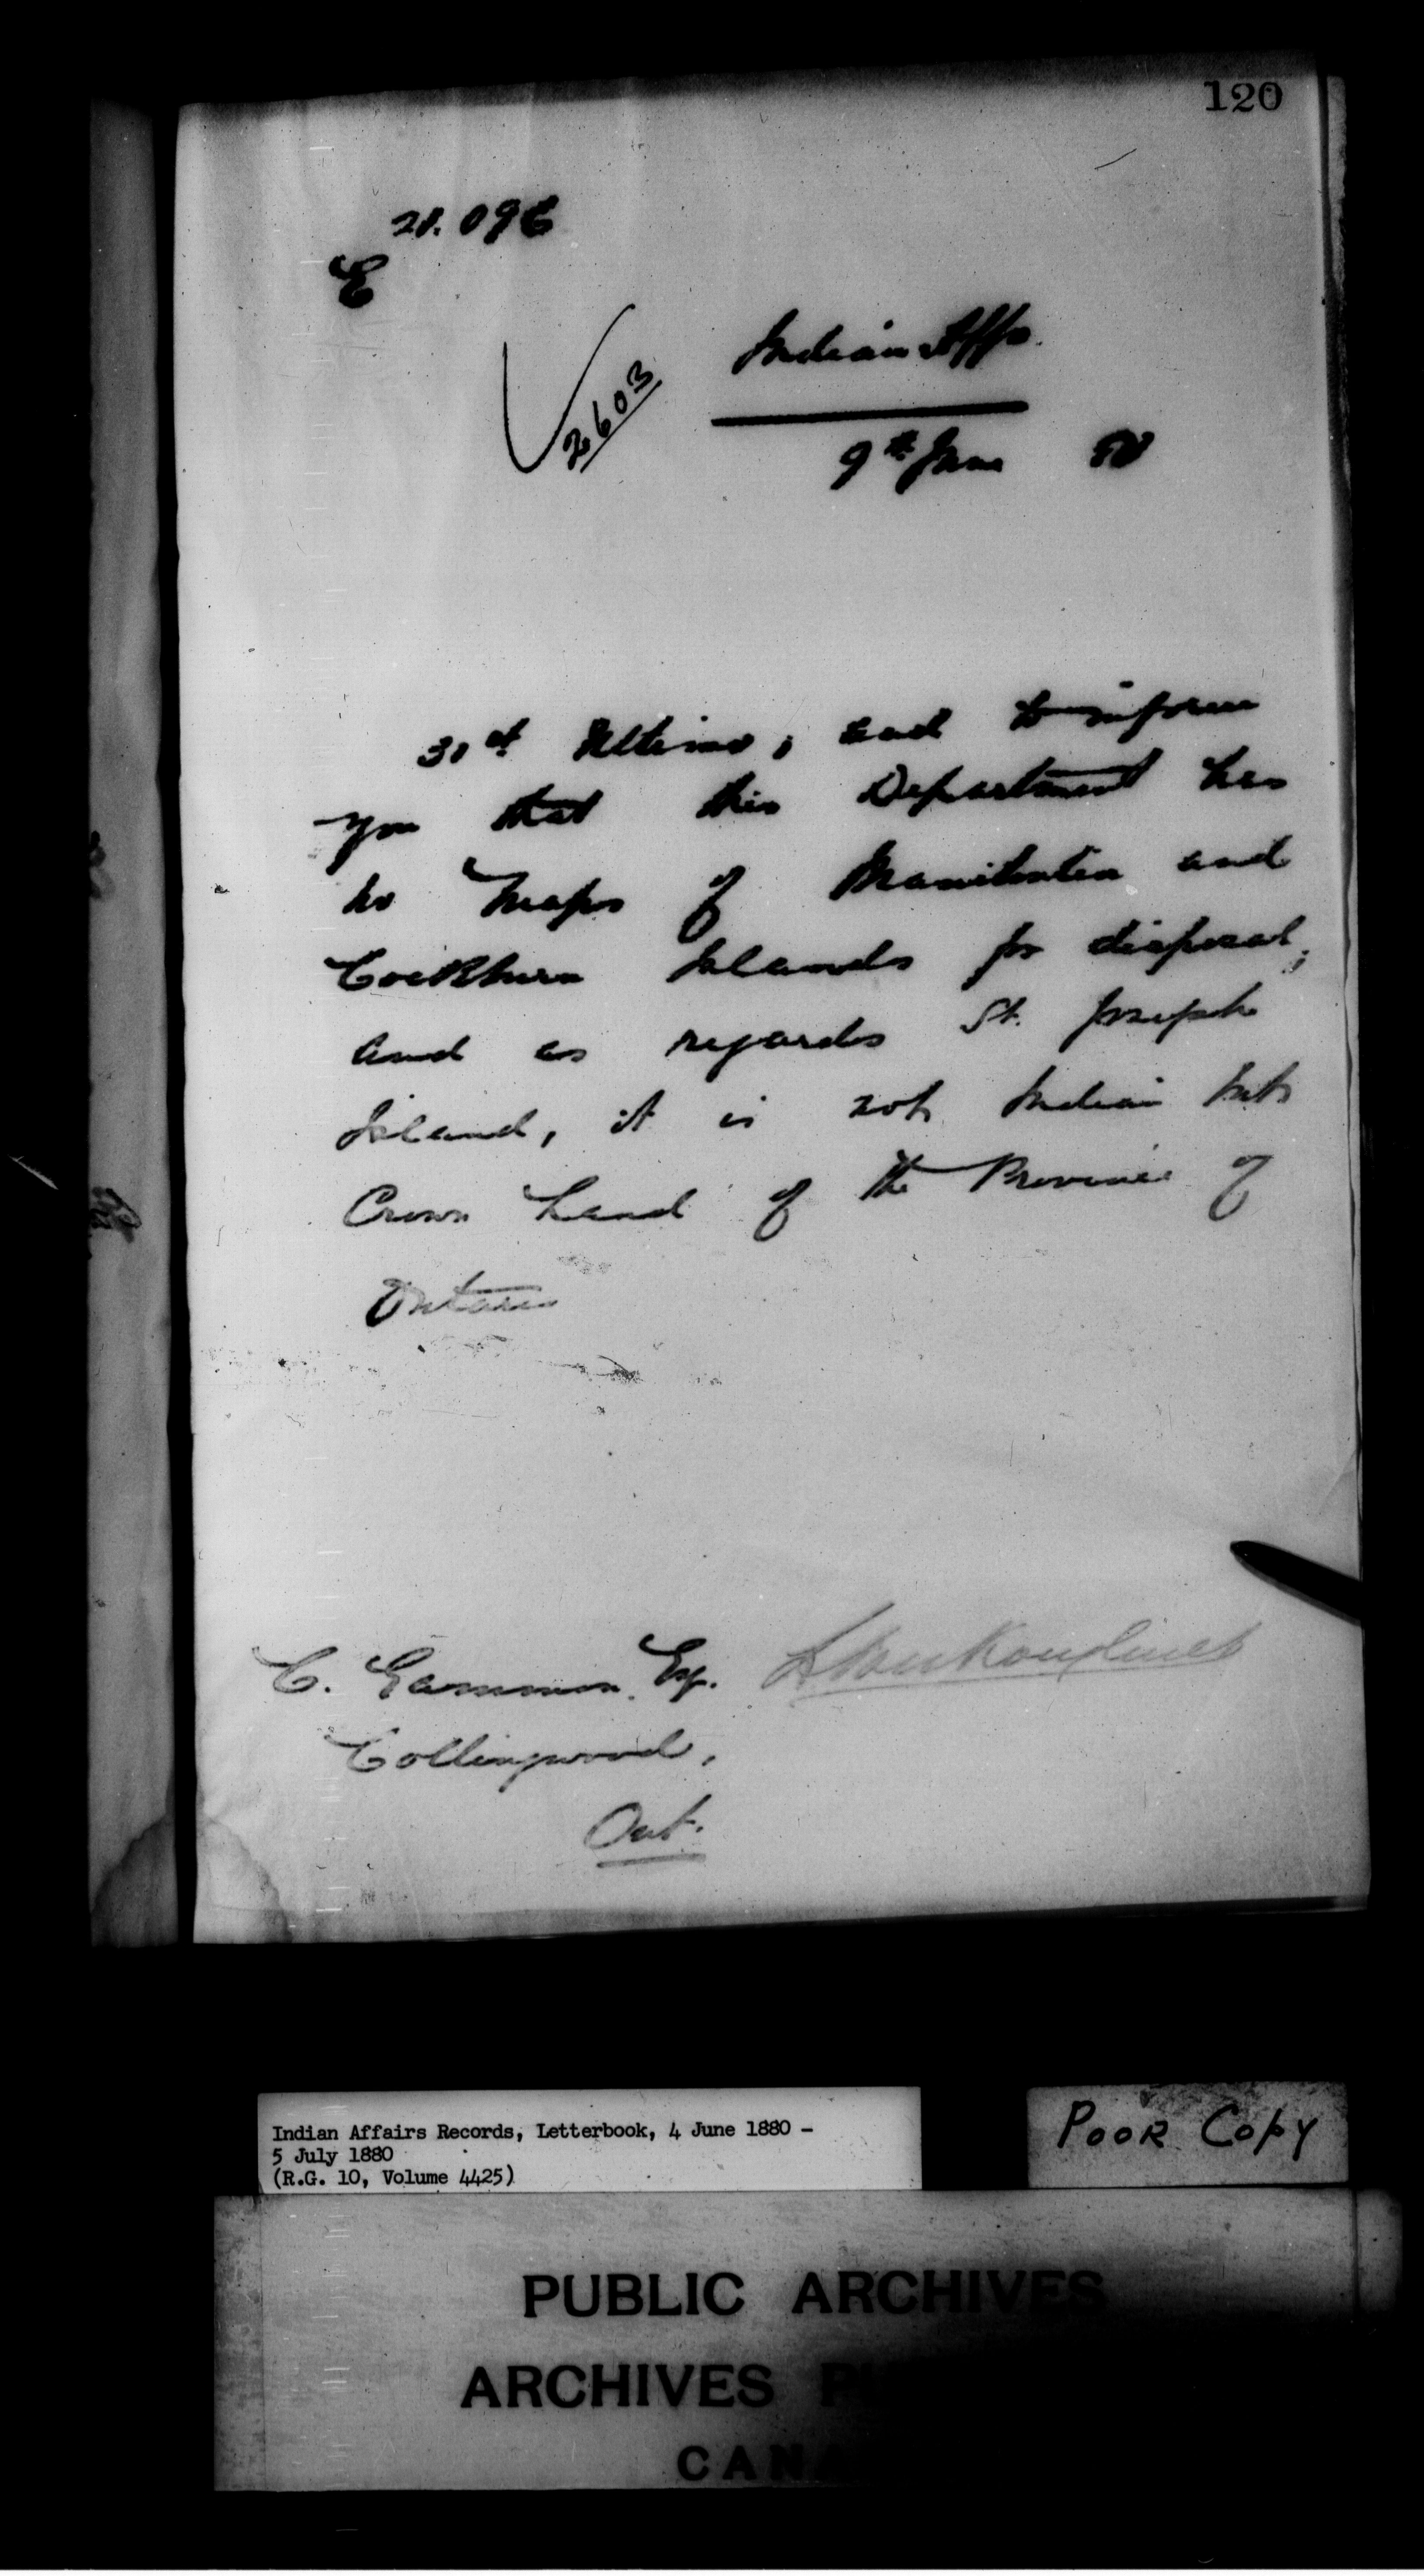 120
E
2603
Indian Affs.
9th June 80
31st Ultimo, and to inform
you that this Department has
no maps of Manitoulin and
Cockburn Islands for disposal;
and as regards St. Joseph
Island, it is not Indian but
Crown Land of the Province of
Ontario
C. Gammon Esq.
Collingwood,
Ont.
Indian Affairs Records, Letterbook, 4 June 1880 -
5 July 1880
(R.G. 10, Volume 4425)
POOR COPY
PUBLIC ARCHIVES
ARCHIVES PU
CANA